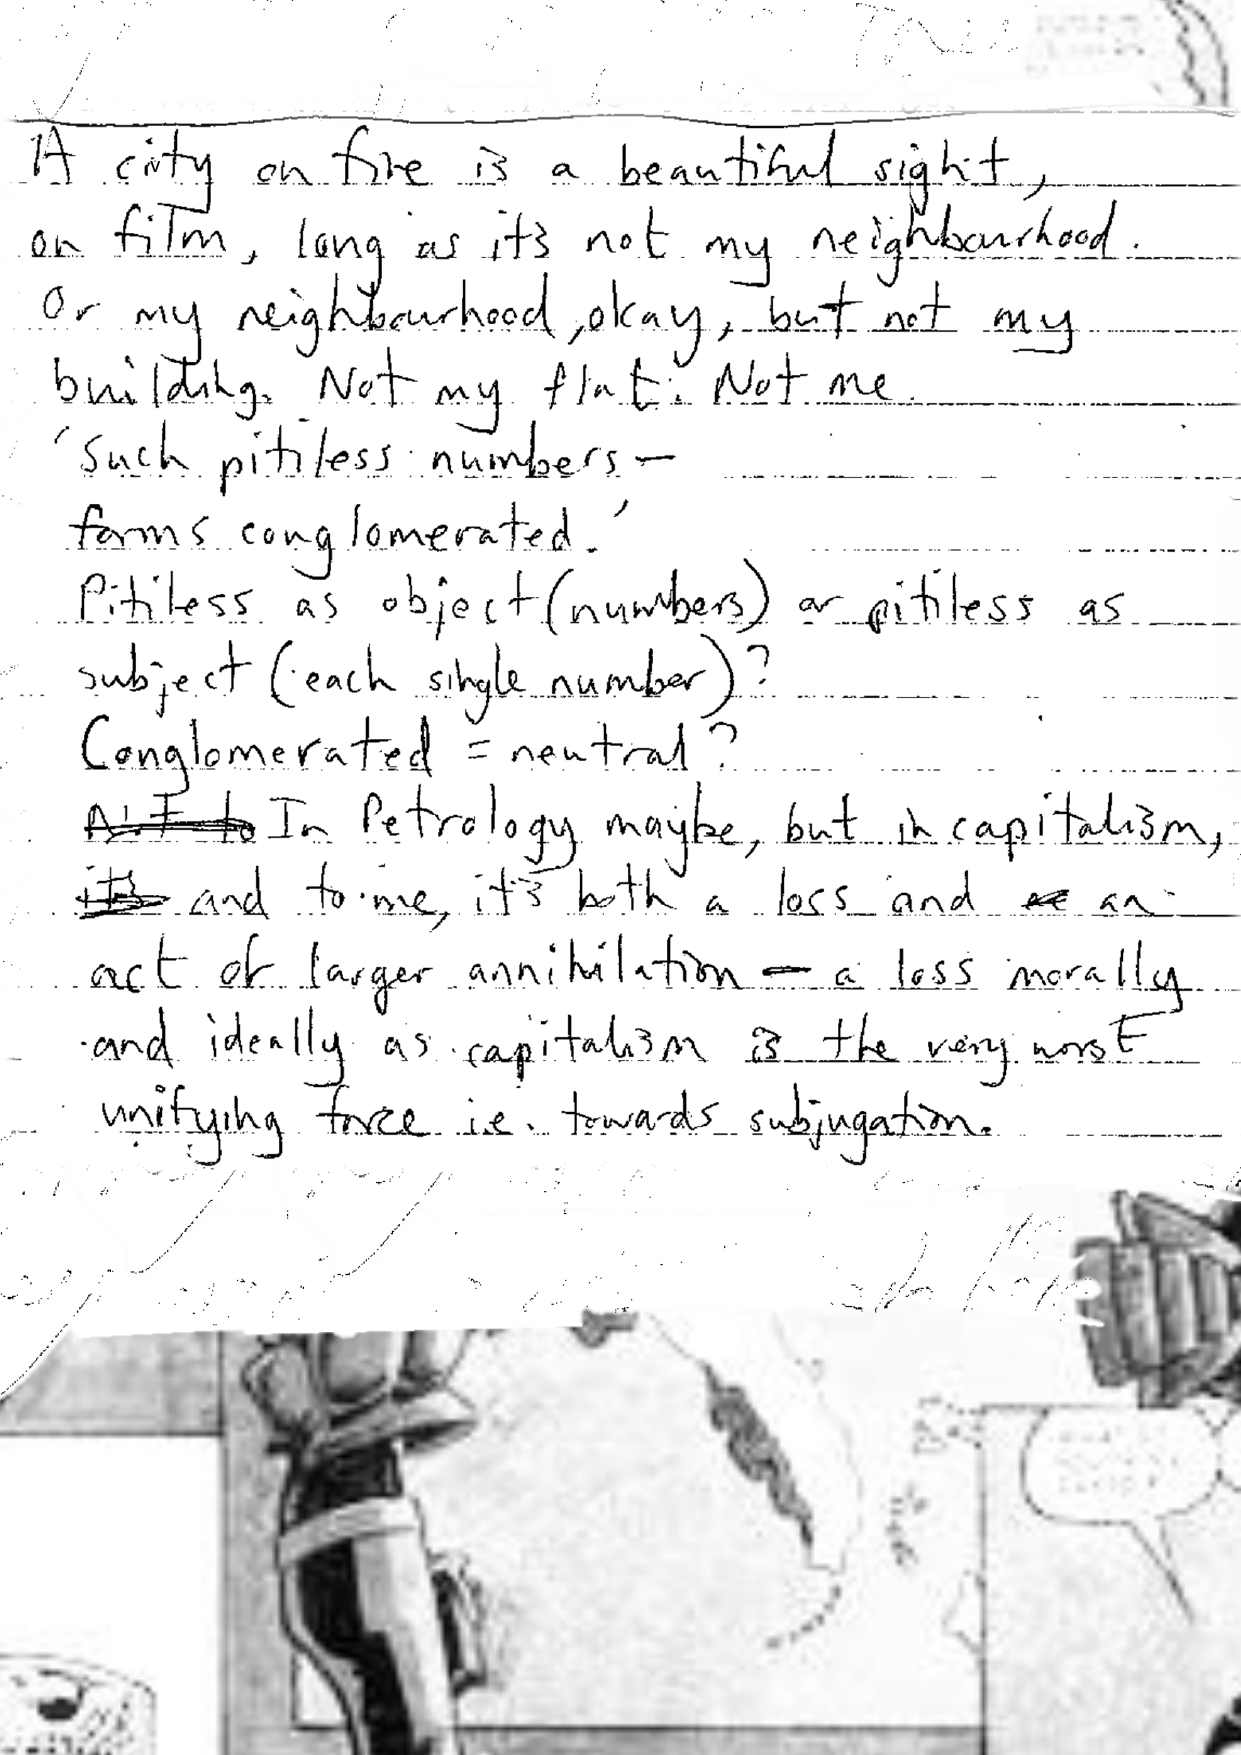 A city on fire is a beautiful sight,
on film, long as it's not my neighbourhood.
Or my neighbourhood, okay, but not my
building. Not my flat. Not me.
'Such pitiless numbers —
forms conglomerated.'
Pitiless as object (numbers) or pitiless as
subject (each single number)?
Conglomerated = neutral?
In Petrology maybe, but in capitalism,
its and to me, it's both a loss and an
act of larger annihilation — a loss morally
and ideally as capitalism is the very worst
unifying force i.e. towards subjugation.